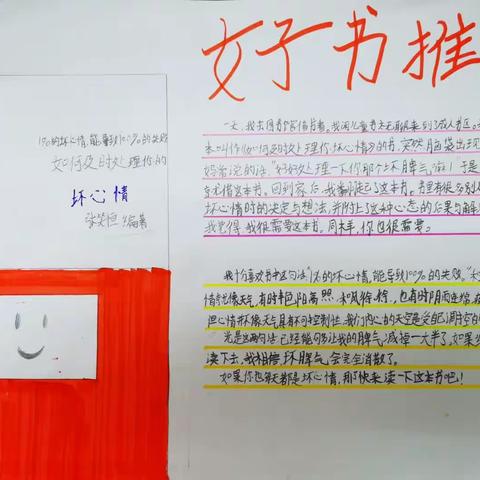 好书推
1%的坏心情,能导致100%的失败
如何及时处理你的
坏心情
张笑恒 编著
一天,我去图书馆借书看。我闲儿童书太无聊,来到了成人书区。
本叫作《如何及时处理你的坏心情》的书。突然脑袋出现
妈常说的话,"好好处理一下你那个坏脾气嘛!"于是
借这本书。回到家后,我翻起了这本书。书里有很多别人
坏心情时的决定与想法,并附上了这种心态的后果与解
我觉得,我很需要这本书。同样,你也很需要。
我十分喜欢书中这句话"1%的坏心情,能导致100%的失败。"
情就像天气,有时艳阳高照、和风徐徐,也有时阴雨连绵、
但心情并不像天气具有不可控制性,我们内心的天空是受自己调控的
光是这两句话已经能够让我的脾气减掉一大半了,如果
读下去,我相信,坏脾气会完全消散了。
如果你也每天都是坏心情,那就快来读一下这本书吧!